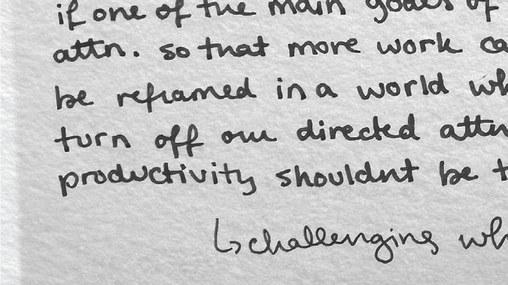 if one of the main goals of
attn. so that more work ca
be reframed in a world wh
turn off our directed attn
productivity shouldnt be t
↳ challenging wh